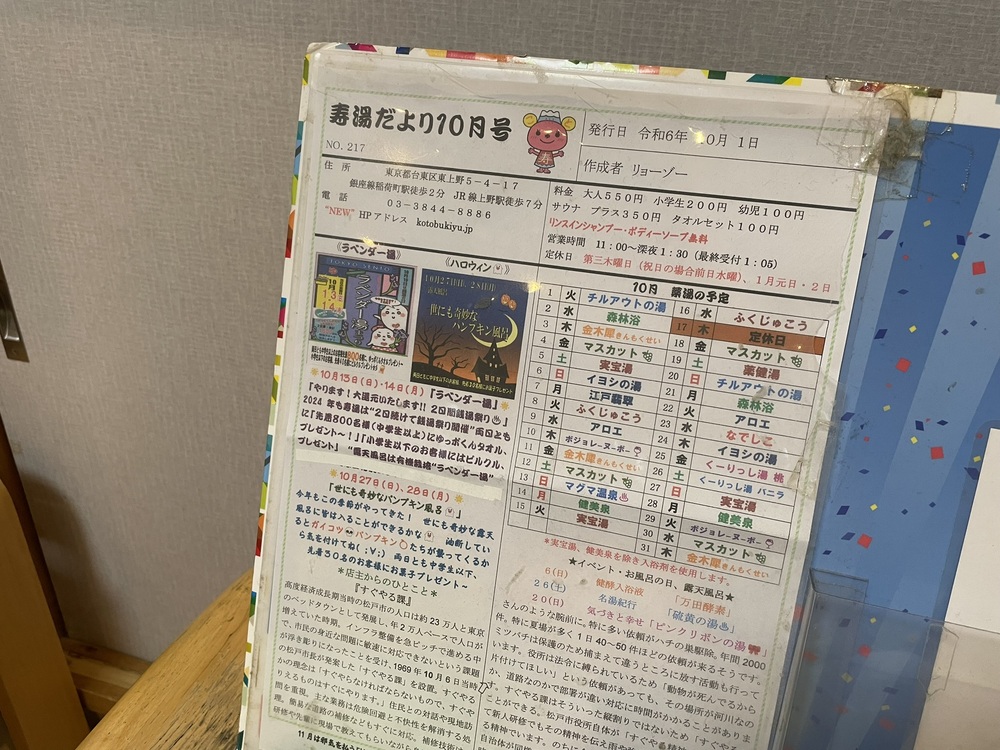 寿湯だより10月号
NO. 217
発行日 令和6年 10月 1日
作成者 リョーゾー
住 所 東京都台東区東上野5-4-17
銀座線稲荷町駅徒歩2分 JR線上野駅徒歩7分
電 話 03-3844-8886
"NEW" HPアドレス kotobukiyu.jp
料金 大人550円 小学生200円 幼児100円
サウナ プラス350円 タオルセット100円
リンスインシャンプー・ボディーソープ無料
営業時間 11:00~深夜1:30(最終受付1:05)
定休日 第三木曜日(祝日の場合前日水曜)、1月元日・2日
《ラベンダー湯》
《ハロウィン》
ラベンダー湯
10月27日(日)、28日(月)
世にも奇妙な
パンプキン風呂
10月13日(日)・14日(月)「ラベンダー湯」
「やります!大還元いたします!!2日間銭湯祭り
2024年も寿湯は"2日続けて銭湯祭り開催"両日とも
に「先着800名様(中学生以上)にゆっポくんタオル、
プレゼント~!」「小学生以下のお客様にはピルクル、
プレゼント」 "露天風呂は有機栽培"ラベンダー湯"
10月27日(日)、28日(月)
「世にも奇妙なパンプキン風呂」
今年もこの季節がやってきた! 世にも奇妙な露天
風呂に皆は入ることができるかな 油断してい
るとガイコツ パンプキン たちが襲ってくるか
ら気を付けてね(;∀;) 両日とも中学生以下、
先着30名のお客様にお菓子プレゼント~
*店主からのひとこと*
『すぐやる課』
高度経済成長期当時の松戸市の人口は約23万人と東京
のベッドタウンとして発展し、年2万人ペースで人口が
増えていた時期。インフラ整備を急ピッチで進める中
で、市民の身近な問題に敏速に対応できないという課題
が浮き彫りになったことを受け、1969年10月6日当時
の松戸市長が発案した「すぐやる課」を設置。すぐやる
かの理念は「すぐやらなければならないもので、すぐや
りえるものはすぐにやります。」住民との対話や現地訪
問を重視。主な業務は危険回避と不快性を解消する処
理。簡易な道路の補修などもすぐに対応。補修技術は
研修や先輩に現場で教えてもらいながら
10月 薬湯の予定
1 火 チルアウトの湯
2 水 森林浴
3 木 金木犀きんもくせい
4 金 マスカット
5 土 実宝湯
6 日 イヨシの湯
7 月 江戸翡翠
8 火 ふくじゅこう
9 水 アロエ
10 木 ボジョレーヌーボー
11 金 金木犀きんもくせい
12 土 マスカット
13 日 マグマ温泉
14 月 健美泉
15 火 実宝湯
16 水 ふくじゅこう
17 木 定休日
18 金 マスカット
19 土 薬健湯
20 日 チルアウトの湯
21 月 森林浴
22 火 アロエ
23 水 なでしこ
24 木 イヨシの湯
25 金 くーりっし湯 桃
26 土 くーりっし湯 バニラ
27 日 実宝湯
28 月 健美泉
29 火 ボジョレーヌーボー
30 水 マスカット
31 木 金木犀きんもくせい
*実宝湯、健美泉を除き入浴剤を使用します。
★イベント・お風呂の日、露天風呂★
6(日) 健酵入浴液 「万田酵素」
26(土) 名湯紀行 「硫黄の湯」
20(日) 気づきと幸せ「ピンクリボンの湯
さんのような腕前に。特に多い依頼がハチの巣駆除。年間2000
件。特に夏場が多く1日40~50件ほどの依頼が来るそうです。
ミツバチは保護のため捕まえて違うところに放す活動も行って
います。役所は法令に縛られているため「動物が死んでるから
片付けてほしい」という依頼があっても、その場所が河川なの
か、道路なのかで部署が違い対応に時間がかかることがありま
す。すぐやる課はそういった縦割りではないため「すぐやる」
ことができる。松戸市役所自体が「すぐやる精神」